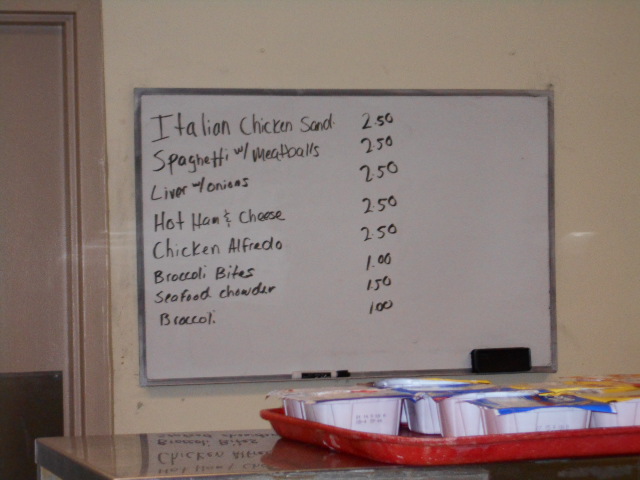 Italian Chicken Sand. 2.50
Spaghetti w/ Meatballs 2.50
Liver w/onions 2.50
Hot Ham & Cheese 2.50
Chicken Alfredo 2.50
Broccoli Bites 1.00
Seafood chowder 1.50
Broccoli 1.00